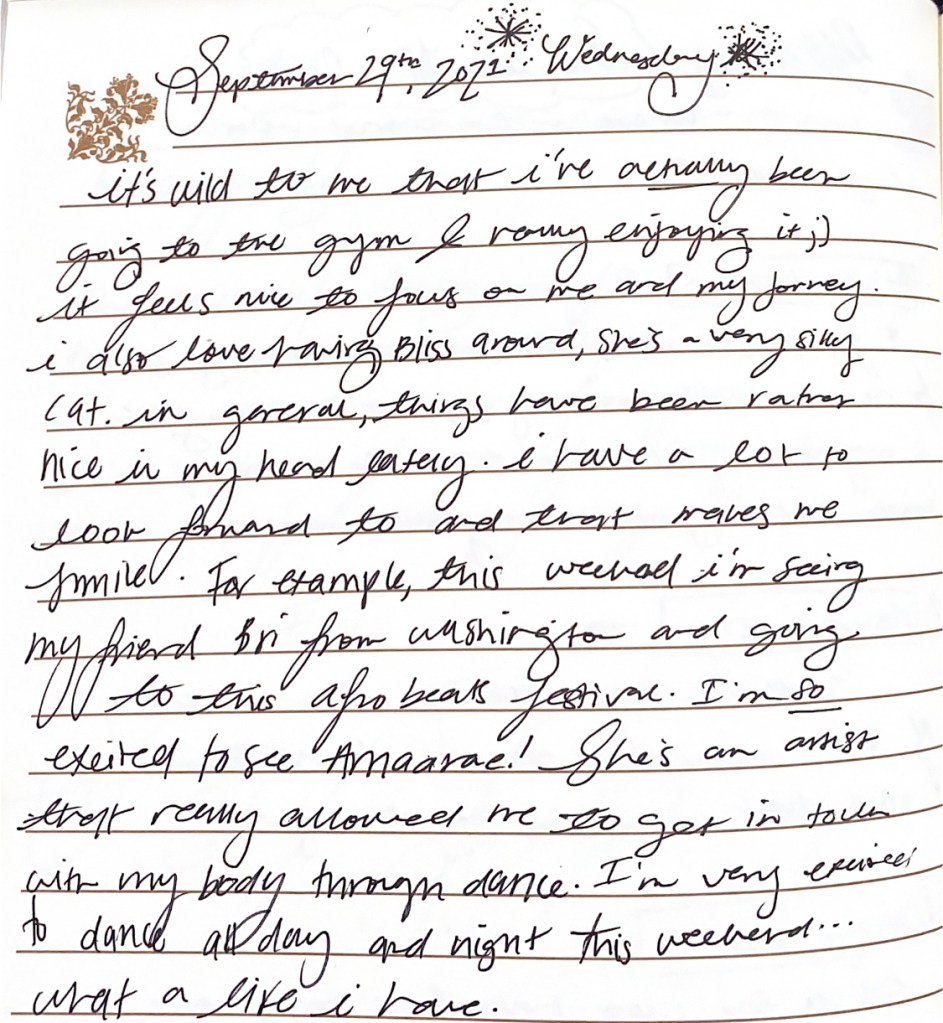 September 29th, 2021 Wednesday
it's wild to me that i've actually been
going to the gym & really enjoying it ;)
it feels nice to focus on me and my jorney.
i also love having Bliss around, she's a very silly
cat. in general, things have been rather
nice in my head lately. i have a lot to
look forward to and that makes me
smile. For example, this weekend i'm seeing
my friend Bri from washington and going
to this afro beats festival. I'm so
excited to see Amaarae! She's an artist
that really allowed me to get in touch
with my body through dance. I'm very excited
to dance all day and night this weekend...
what a life i have.